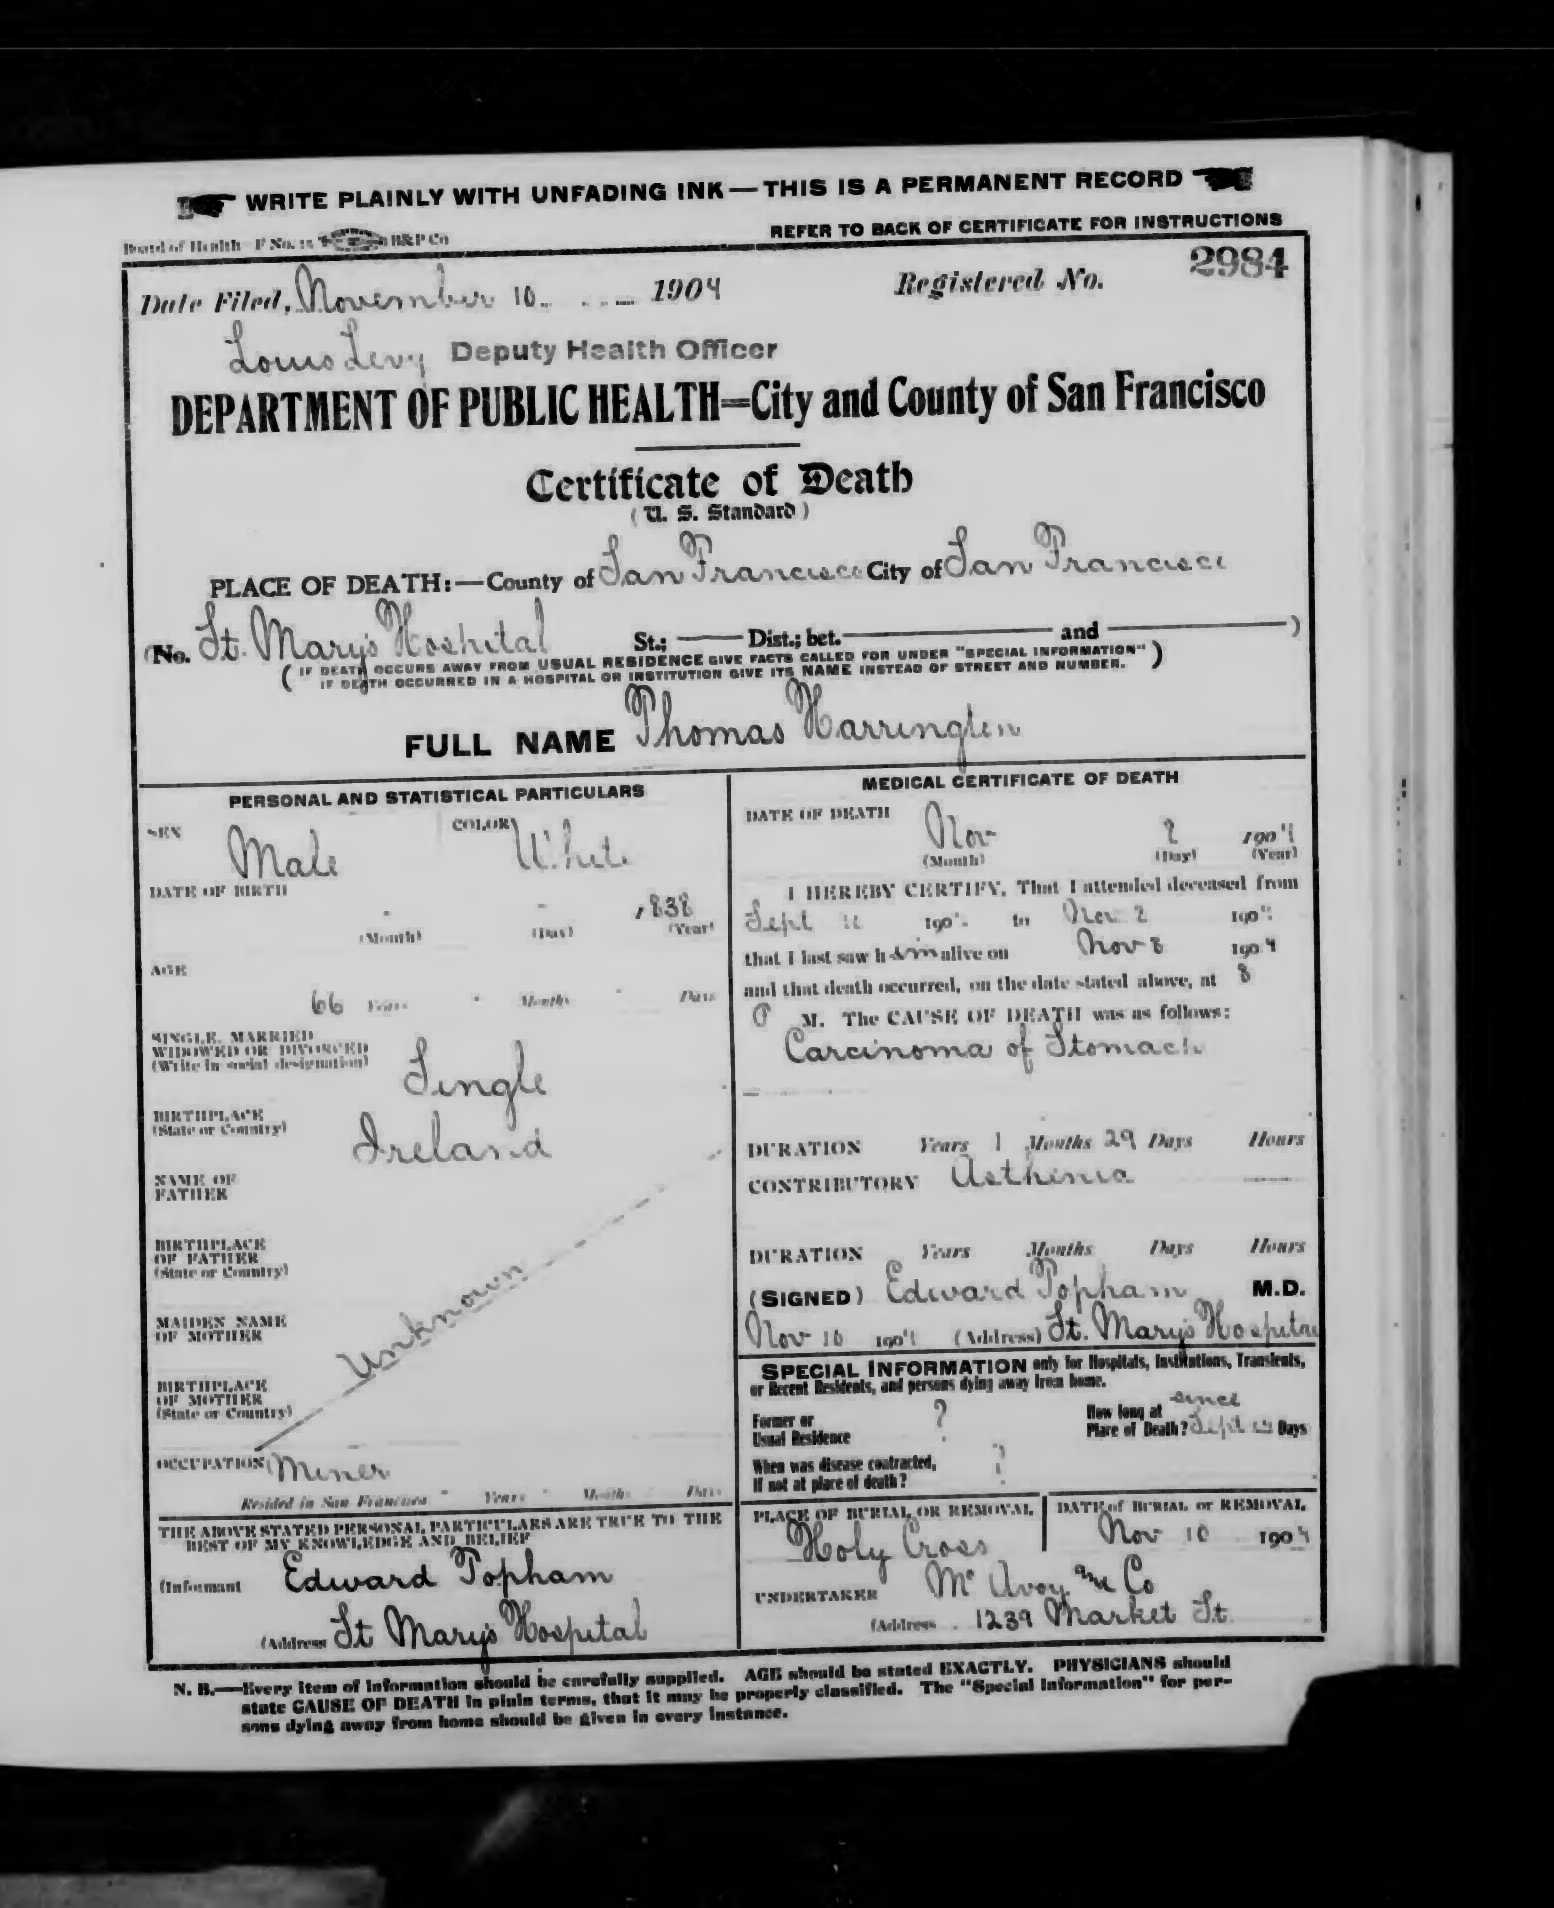 WRITE PLAINLY WITH UNFADING INK—THIS IS A PERMANENT RECORD
Board of Health F No. B&P Co
REFER TO BACK OF CERTIFICATE FOR INSTRUCTIONS
Date Filed, November 10 1904 Registered No. 2984
Louis Levy Deputy Health Officer
DEPARTMENT OF PUBLIC HEALTH=City and County of San Francisco
Certificate of Death
(U. S. Standard)
PLACE OF DEATH:—County of San Francisco City of San Francisco
(No. St. Mary's Hospital St.; Dist.; bet. and )
( IF DEATH OCCURS AWAY FROM USUAL RESIDENCE GIVE FACTS CALLED FOR UNDER "SPECIAL INFORMATION" )
IF DEATH OCCURRED IN A HOSPITAL OR INSTITUTION GIVE ITS NAME INSTEAD OF STREET AND NUMBER.
FULL NAME Thomas Harrington
PERSONAL AND STATISTICAL PARTICULARS
SEX Male COLOR White
DATE OF BIRTH
1838
(Month) (Day) (Year)
AGE
66 Years Months Days
SINGLE, MARRIED
WIDOWED OR DIVORCED
(Write in social designation) Single
BIRTHPLACE
(State or Country) Ireland
NAME OF
FATHER
BIRTHPLACE
OF FATHER
(State or Country)
Unknown
MAIDEN NAME
OF MOTHER
BIRTHPLACE
OF MOTHER
(State or Country)
OCCUPATION Miner
Resided in San Francisco Years Months Days
THE ABOVE STATED PERSONAL PARTICULARS ARE TRUE TO THE
BEST OF MY KNOWLEDGE AND BELIEF
(Informant Edward Topham
(Address St Mary's Hospital
MEDICAL CERTIFICATE OF DEATH
DATE OF DEATH
Nov 1904
(Month) (Day) (Year)
I HEREBY CERTIFY, That I attended deceased from
Sept 190 to Nov 190
that I last saw him alive on Nov 8 1904
and that death occurred, on the date stated above, at 8
P M. The CAUSE OF DEATH was as follows:
Carcinoma of Stomach
DURATION Years 1 Months 29 Days Hours
CONTRIBUTORY Asthenia
DURATION Years Months Days Hours
(SIGNED) Edward Topham M.D.
Nov 10 1904 (Address) St. Mary's Hospital
SPECIAL INFORMATION only for Hospitals, Institutions, Transients,
or Recent Residents, and persons dying away from home.
Former or
Usual Residence ?
How long at since
Place of Death? Sept Days
When was disease contracted,
If not at place of death? ?
PLACE OF BURIAL OR REMOVAL
Holy Cross
DATE of BURIAL or REMOVAL
Nov 10 1904
UNDERTAKER McAvoy and Co
(Address 1239 Market St.
N. B.—Every item of information should be carefully supplied. AGE should be stated EXACTLY. PHYSICIANS should
state CAUSE OF DEATH in plain terms, that it may be properly classified. The "Special Information" for per-
sons dying away from home should be given in every instance.